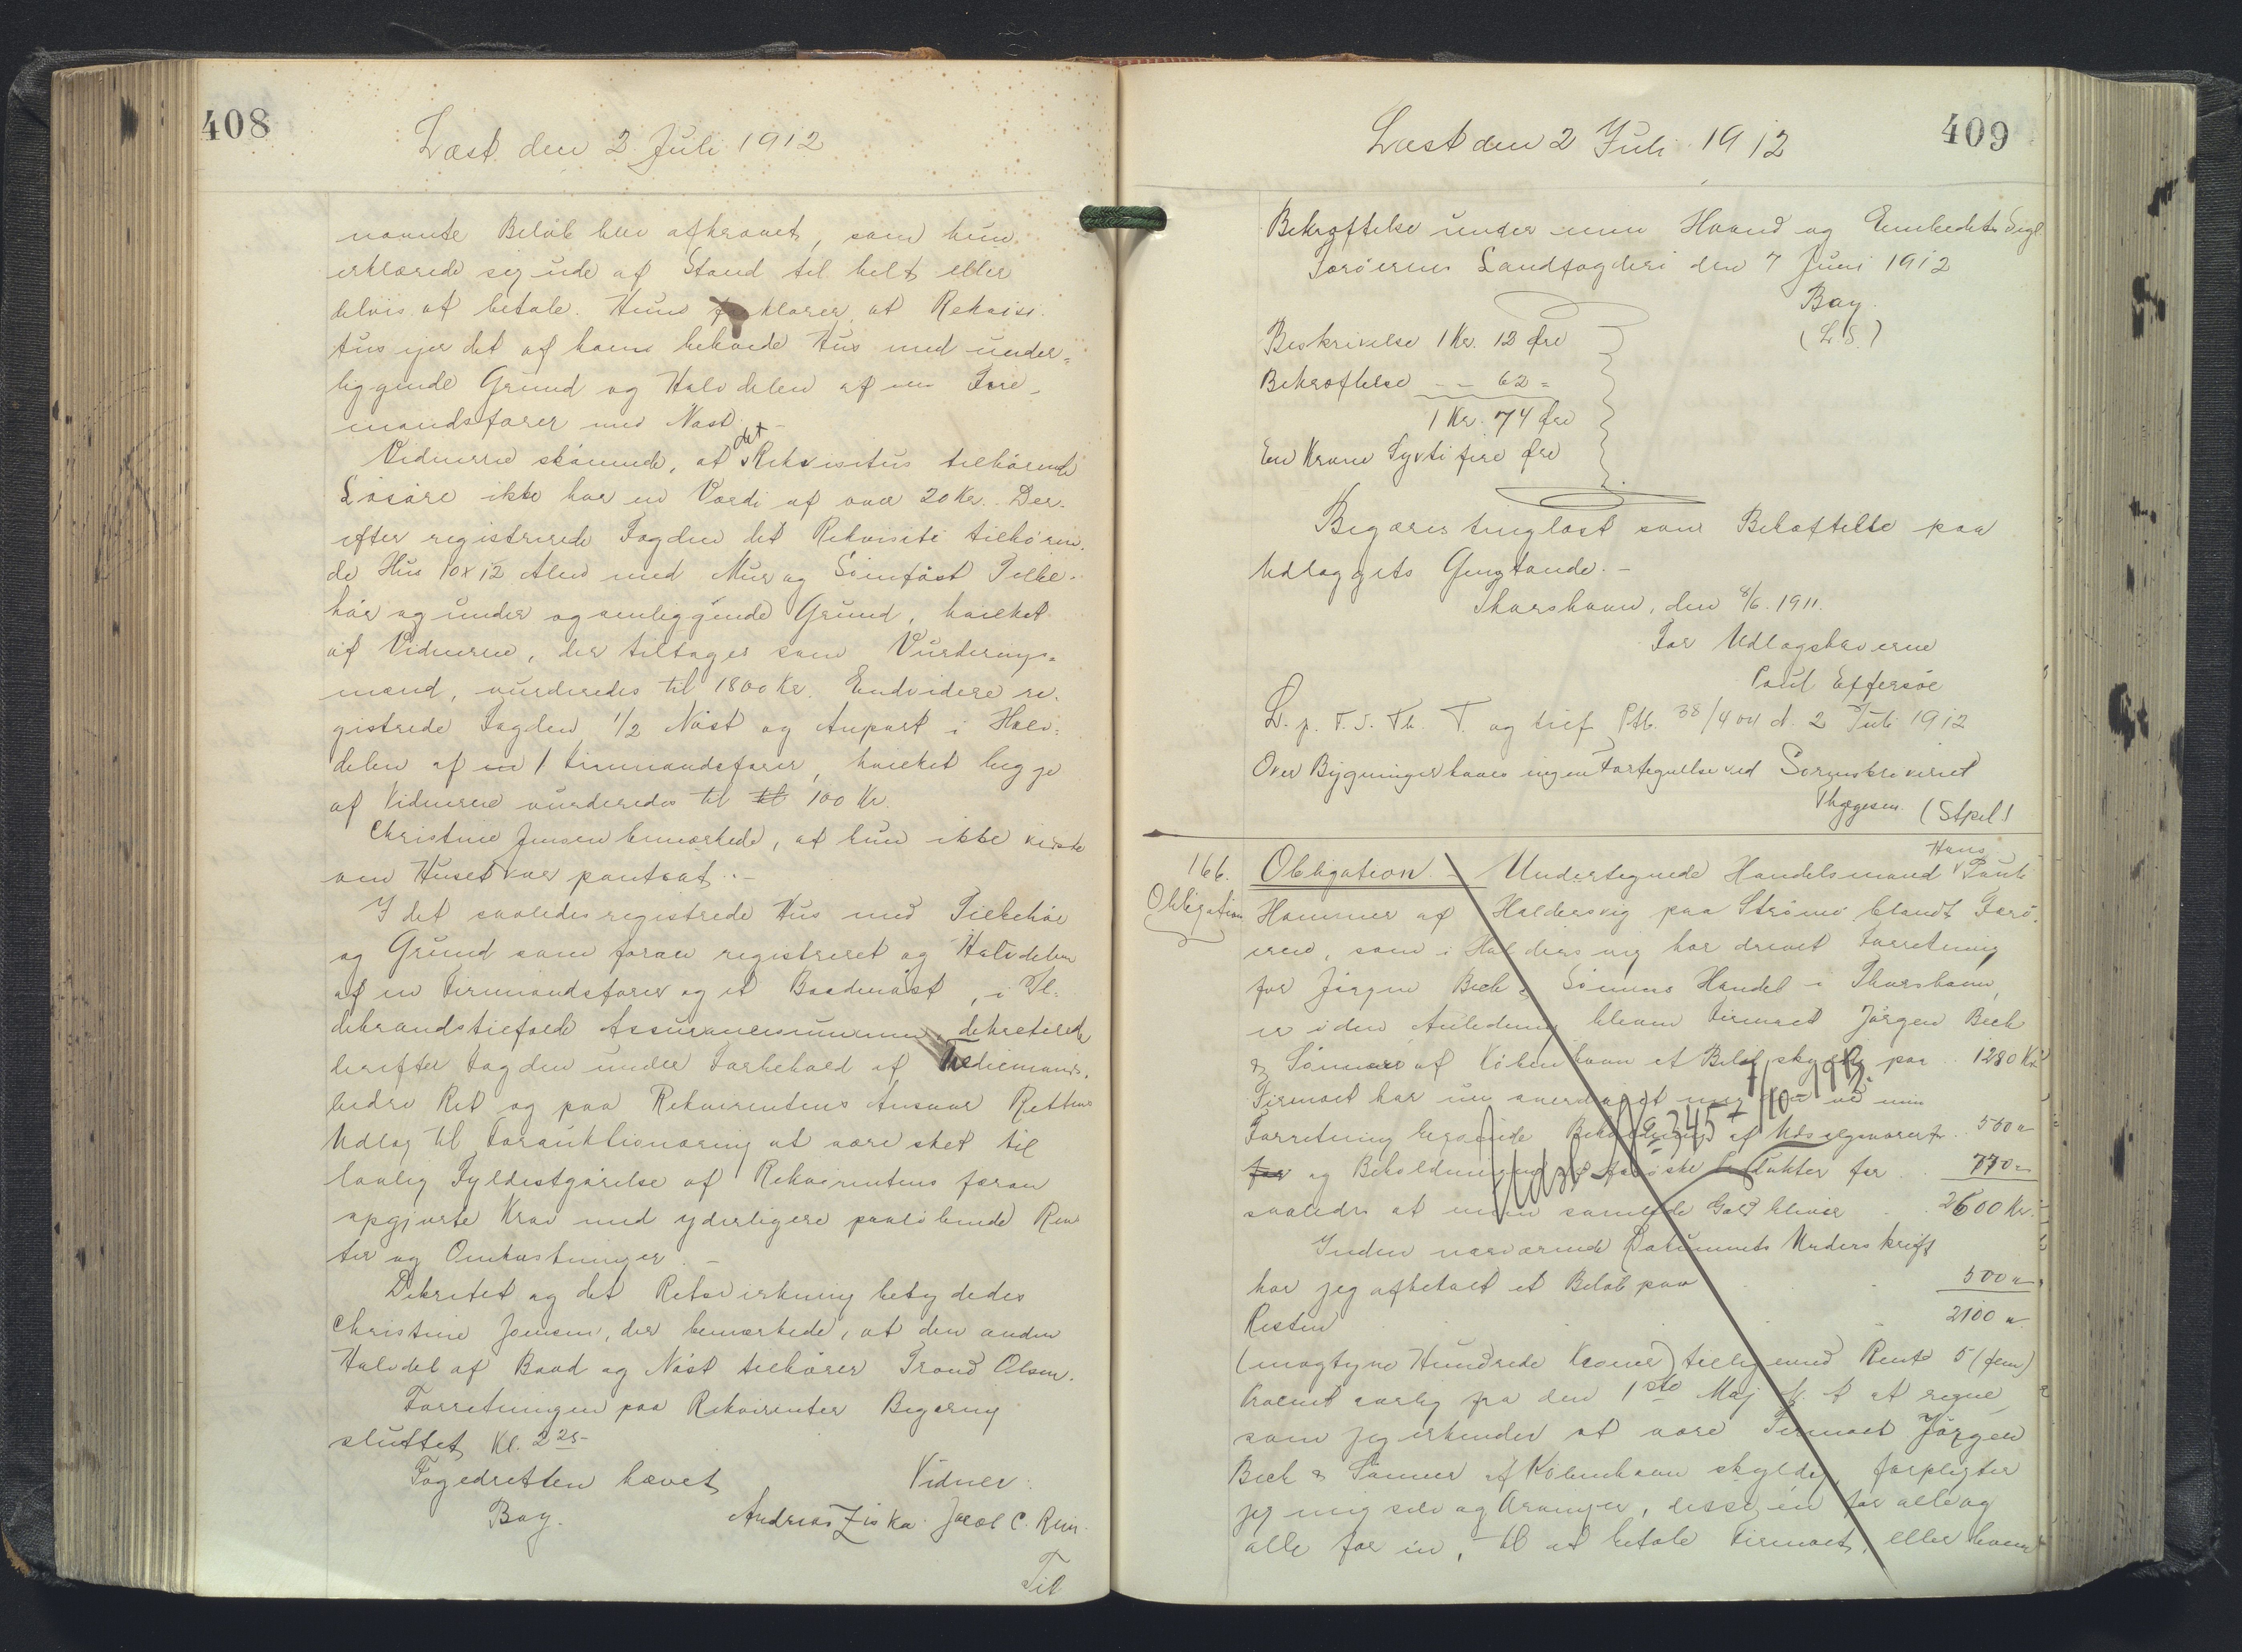 408
Læst den 2 Juli 1912
nævnte Beløb blev afkrævet, som hun
erklærede sig ude af Stand til helt eller
delvis at betale. Hun forklarer, at Rekvisi-
tus ejer det af ham beboede Hus med under-
liggende Grund og Halvdelen af en Fire-
mandsfarer med Nøst. -
Vidnerne skønnede, at det Rekvisitus tilhørende
Løsøre ikke har en Værdi af over 20 Kr. Der-
efter registrerede Fogden det Rekvisiti tilhøren-
de Hus 10x12 Alen med Mur og Sømfast Tilbe-
hør og under og omliggende Grund, hvilket
af Vidnerne, der tiltages som Vurderings-
mænd, vurderedes til 1800 Kr. Endvidere re-
gistrede Fogden 1/2 Nøst og Anpart i Halv-
delen af en 1 Firmandsfarer, hvilket begge
af Vidnerne vurderedes til til 100 Kr.
Christine Joensen bemærkede, at hun ikke vidste
om Huset var pantsat. -
I det saaledes registrede Hus med Tilbehør
og Grund som foran registreret og Halvdelen
af en Firmandsfarer og et Baadenøst, i Il-
debrandstilfælde Assurancesummen, dekreterede
derefter Fogden under Forbehold af Trediemands
bedre Ret og paa Rekvirentens Ansvar Rettens
Udlæg til Forauktionering at være sket til
lovlig Fyldestgørelse af Rekvirentens foran
opgjorte Krav med yderligere paaløbende Ren-
ter og Omkostninger. -
Dekretet og det Retsvirkning betydedes
Christine Joensen, der bemærkede, at den anden
Halvdel af Baad og Nøst tilhører Trond Olsen.
Forretningen paa Rekvirenter Begæring
sluttet Kl. 2 25-
Fogedretten hævet
Vidner:
Bay.
Andreas Ziska. Jacob C. Rein.
Til
409
Læst den 2 Juli 1912
Bekræftelse under min Haand og Embedets Segl.
Færøernes Landfogderi den 7 Juni 1912
Bay.
(L.S.)
Beskrivelse 1 Kr. 12 Øre
Bekræftelse - - 62 =
1 Kr. 74 Øre
En Krone Syvti fire Øre
Begæres tinglæst som Behæftelse paa
Udlæggets Genstande. -
Thorshavn, den 8/6. 1911.
For Udlægshaverne
Poul Effersøe
L. p. F. S. Th. T. og tilf. Ptb. 38/404 d. 2 Juli 1912
Over Bygninger haves ingen Fortegnelse ved Sorenskriveriet
Thygesen. (Stpel.)
166.
Obligation
Obligation. - Undertegnede Handelsmand Hans Pauli
Hammer af Haldersvig paa Strømø blandt Færø-
erne, som i Haldersvig har drevet Forretning
for Jørgen Bech & Sønners Handel i Thorshavn,
er i den Anledning bleven Firmaet Jørgen Bech
& Sønner af København et Beløb skyldig paa .. 1280 Kr.
Firmaet har nu overdraget mig den ved min
Forretning beroende Beholdning af Udsalgsvarer for .. 550 "
for og Beholdningen af færøiske Produkter for . 770 "
saaledes at min samlede Gæld bliver . . 2600 Kr.
Udsl. G 345 7/10-1913.
Inden nærværende Dokuments Underskrift
har jeg afbetalt et Beløb paa . . 500 "
Resten . . . . 2100 "
(enogtyve Hundrede Kroner) tilligemed Rente 5 (fem)
Procent aarlig fra den 1ste Maj d. A. at regne,
som jeg erkender at være Firmaet Jørgen
Bech & Sønner af København skyldig, forpligter
jeg mig selv og Arvinger, disse en for alle og
alle for en, til at betale Firmaet, eller hvem